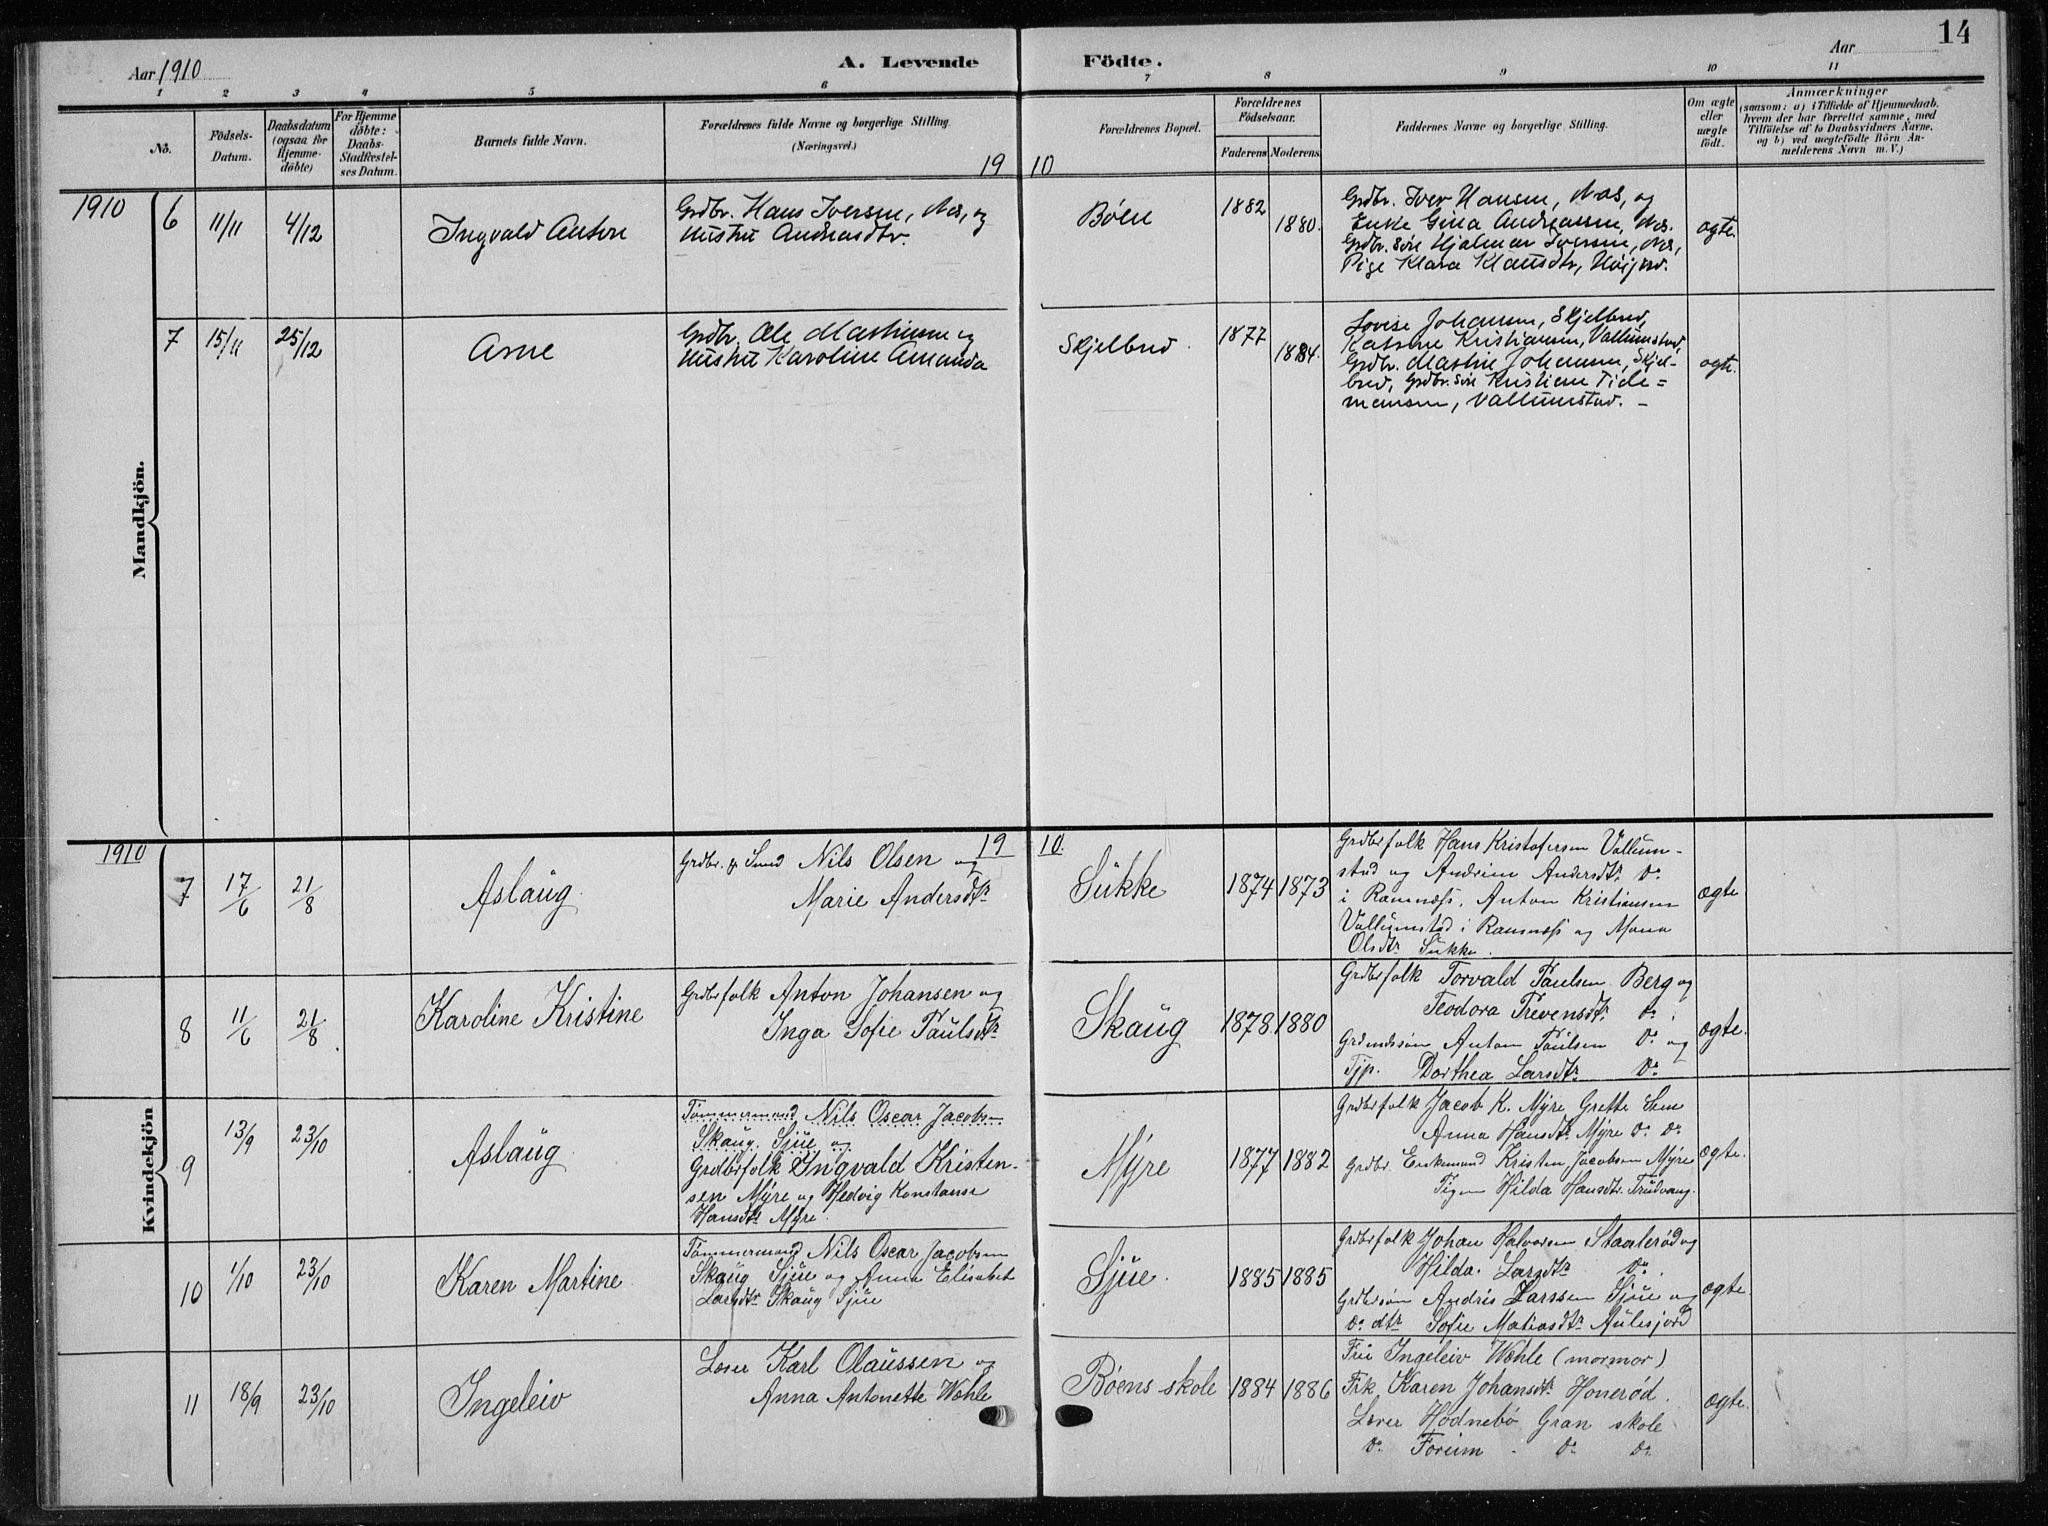 14
Aar 1910
A. Levende Födte.
Aar
1 2 3 4 5 6 7 8 9 10 11
No.
Födsels-
Datum.
Daabsdatum
(ogsaa for
Hjemme-
döbte)
For Hjemme
döbte:
Daabs-
Stadfæstel-
ses Datum.
Barnets fulde Navn.
Forældrenes fulde Navne og borgerlige Stilling.
(Næringsvei.)
19 10
Forældrenes Bopæl.
Forældrenes
Födselsaar.
Faderens Moderens
Faddernes Navne og borgerlige Stilling.
Om ægte
eller
uægte
födt.
Anmærkninger
(saasom: a) i Tilfælde af Hjemmedaab,
hvem der har forrettet samme, med
Tilföielse af to Daabsvidners Navne,
og b) ved uægtefödte Börn An-
melderens Navn m. V.)
1910
Mandkjön.
6
11/11
4/12
Ingvald Anton
Grdbr. Hans Iversen, Næs, og
Hustru Andreasdtr.
Bøen
1882
1880.
Grdbr. Iver Hansen, Næs, og
Enke Gina Andreassen, Næs.
Grdbr. søn Hjalmar Iversen, Næs,
Pige Klara Klausdtr,
ægte.
7
15/11
25/12
Arne
Grdbr. Ole Mathisen og
Hustru Karoline Amanda
Skjelbred.
1877
1884.
Lovise Johansen, Skjelbred,
Katrine Kristiansen, Vallumstad,
Grdbr. Martin Johansen, Skjel-
bred, Grdbr. søn Kristian Tide=
mansen, Vallumstad. -
ægte.
1910
19 10.
Kvindekjön
7
17/6
21/8
Aslaug
Grdbr. & Smed Nils Olsen og
Marie Andersdtr
Sükke
1874
1873
Grdbrfolk Hans Kristofersen Vallum-
stad og Andrine Andersdtr Do
i Ramnæss. Anton Kristiansen
Vallumstad i Ramnæss og Maria
Olsdtr Sukke.
ægte
8
11/6
21/8
Karoline Kristine
Grdbrfolk Anton Johansen og
Inga Sofie Paulsdtr
Skaug
1878
1880
Grdbrfolk Torvald Paulsen Berg og
Teodora Trevensdtr Do.
Grdmdssøn Anton Paulsen Do og
Tjp. Dorthea Larsdtr Do
ægte.
9
13/9
23/10
Aslaug
Tømmermand Nils Oscar Jacobsen
Skaug Sjue og
Grdbrfolk Ingvald Kristen-
sen Myre og Hedvig Konstanse
Hansdtr Myre.
Myre
1877
1882
Grdbrfolk Jacob K. Myre Grette Sem
Anna Hansdtr Myre Do Do
Grdbr. Enkemand Kristen Jacobsen Myre
Pigen Hilda Hansdtr. Trudvang.
ægte.
10
1/10
23/10
Karen Martine
Tømmermand Nils Oscar Jacobsen
Skaug Sjue og Anna Elisabet
Larsdtr Skaug Sjue
Sjue.
1885
1885
Grdbrfolk Johan Halvorsen Staalerød og
Hilda Larsdtr Do.
Grdbrsøn Andrés Larssen Sjue og
Do dtr Sofie Matiasdtr Aulesjord
ægte.
11
18/9
23/10
Ingeleiv
Lærer Karl Olaussen og
Anna Antonette Wøhle
Bøens skole
1884
1886
Frü Ingeleiv Wøhle (mormor)
Frk. Karen Johansdtr Honerød.
Lærer Hodnebø Gran skole
Do Foreim - Do Do
ægte.